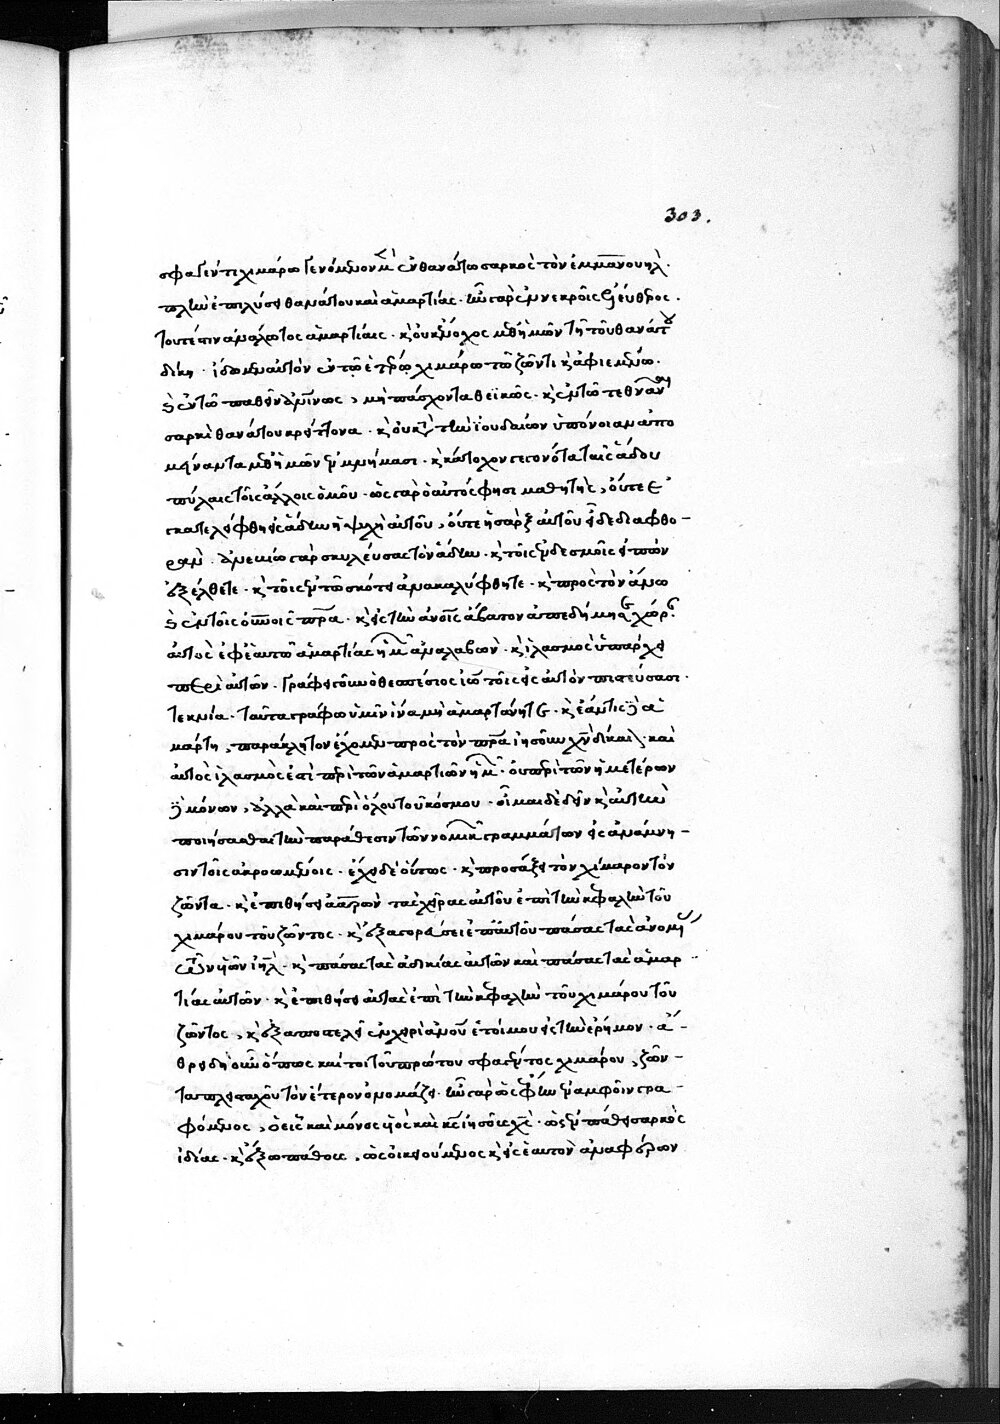 303.
σφαγέντι χιμάρω γενόμενον ἐν θανάτω σαρκὸς τὸν ἐμμανουήλ·
θανάτου καὶ ἁμαρτίας· ἦν γὰρ ἐν νεκροῖς ἐλεύθρος·
τουτέστιν ἀνάλωτος ἁμαρτίαις· κ οὐκ ἔνοχος μεθ ἡμῶν τῆ τοῦ θανάτου
δίκη· ἴδωμεν αὐτὸν ἐν τῶ ἑτέρω χιμάρω τῶ ζῶντι κ ἀφιεμένω·
ἐν τῶ παθεῖν ἀνθρωπίνως, μὴ πάσχοντα θεϊκῶς· κ ἐν τῶ τεθνάναι
σαρκὶ θανάτου κρείττονα· κ οὐ κατὰ τὴν ἰουδαίων ὑπόνοιαν ἀπο
μείναντα μεθ ἡμῶν ἐν μνήμασι· κ κάτοχον γεγονότα ταῖς ἅδου
πύλαις τοῖς ἄλλοις ὁμοῦ· ὡς γὰρ ὁ αὐτός φησι μαθητής, οὔτε ἐ
γκατελείφθη εἰς ἅδην ἡ ψυχὴ αὐτοῦ, οὔτε ἡ σὰρξ αὐτοῦ εἶδε διαφθο-
ράν· ἀνεβίω γὰρ σκυλεύσας τὸν ἅδην· κ τοῖς ἐν δεσμοῖς εἰπὼν
ἐξέλθετε· κ τοῖς ἐν τῶ σκότει ἀνακαλύφθητε· κ πρὸς τὸν ἄνω
ἐν τοῖς οὐνοῖς πρα· κ εἰς τὴν ἀνοις ἄβατον ἀπεδήμησε χώραν
αὐτὸς ἐφ ἑαυτῶ ἁμαρτίας ἡμῶν ἀναλαβών· κ ἱλασμὸς ὑπάρχει
περὶ αὐτῶν· γράφει γοῦν ὁ θεσπέσιος ἰω τοῖς εἰς αὐτὸν πιστεύσασι·
τεκνία· ταῦτα γράφω ὑμῖν ἵνα μὴ ἁμαρτάνητε· κ ἐάν τις ἁ
μάρτη, παράκλητον ἔχομεν πρὸς τὸν πρα ἰησοῦν χν δίκαιον· καὶ
αὐτὸς ἱλασμός ἐστι περὶ τῶν ἁμαρτιῶν ἡμῶν· οὐ περὶ τῶν ἡμετέρων
δὲ μόνων, ἀλλὰ καὶ περὶ ὅλου τοῦ κόσμου· οἶμαι δὲ δεῖν κ αὐτὴν
ποιήσασθαι τὴν παράθεσιν τῶν νομικῶν γραμμάτων εἰς ἀνάμνη-
σιν τοῖς ἀκροωμένοις· ἔχει δὲ οὕτως· κ προσάξει τὸν χίμαρον τὸν
ζῶντα· κ ἐπιθήσει ἀαρὼν τὰς χεῖρας αὐτοῦ ἐπὶ τὴν κεφαλὴν τοῦ
χιμάρου τοῦ ζῶντος· κ ἐξαγορεύσει ἐπ αὐτοῦ πάσας τὰς ἀνομίας
τῶν υἱῶν ιηλ· κ πάσας τὰς ἀδικίας αὐτῶν καὶ πάσας τὰς ἁμαρ
τίας αὐτῶν· κ ἐπιθήσει αὐτὰς ἐπὶ τὴν κεφαλὴν τοῦ χιμάρου τοῦ
ζῶντος, κ ἐξαποστελεῖ ἐν χειρὶ ανου ἑτοίμου εἰς τὴν ἔρημον· ἄ-
θρει δὴ οὖν ὅπως καίτοι τοῦ πρώτου σφαγέντος χιμάρου, ζῶν-
τα πλεισταχοῦ τὸν ἕτερον ὀνομάζει· ἦν γὰρ ὡς ἔφην ἐν ἀμφοῖν γρα-
φόμενος, ὁ εἷς καὶ μόνος υἱὸς καὶ κς ἰησοῦς χς· ὡς ἐν πάθει σαρκὸς
ἰδίας· κ ἔξω πάθους, ὡς οἰκειούμενος κ εἰς ἑαυτὸν ἀναφέρων